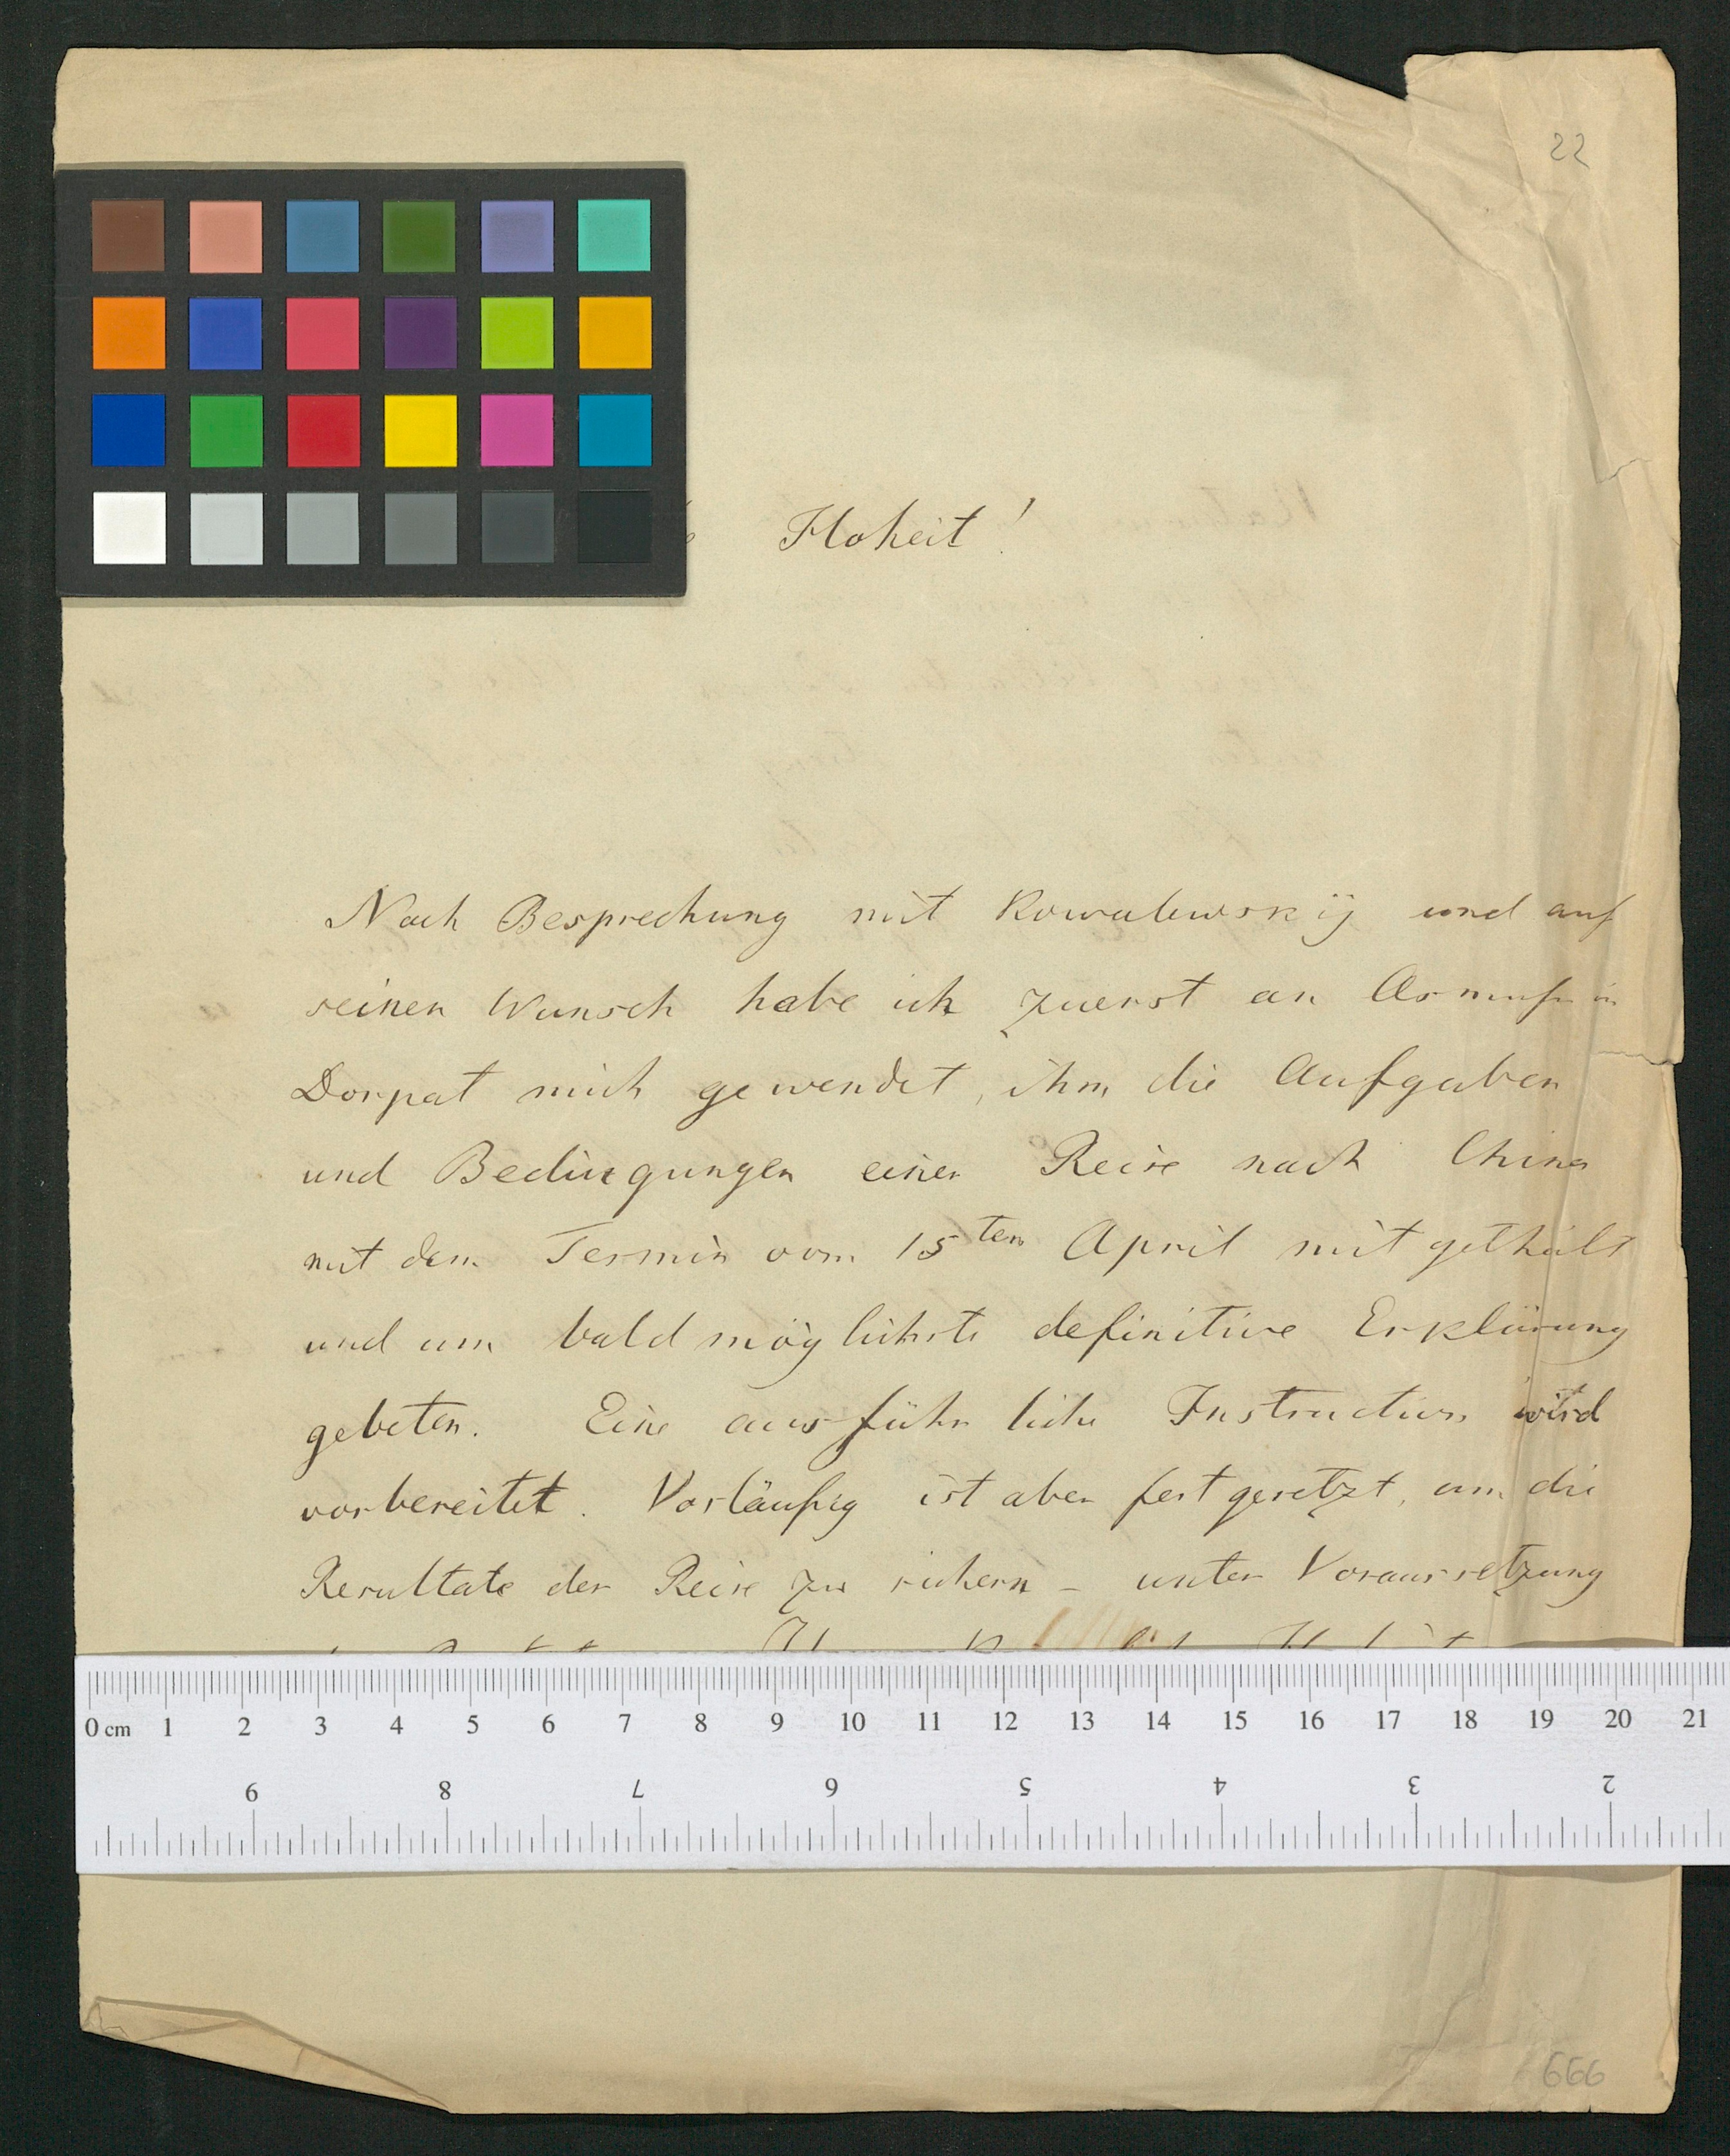 22
Hoheit!
Nach Besprechung mit Kowalewskij und auf
seinen Wunsch habe ich zuerst an Asmuß in
Dorpat mich gewendet, ihm die Aufgaben
und Bedingungen einer Reise nach China
mit dem Termin vom 15ten April mitgetheilt
und um baldmöglichste definitive Erklärung
gebeten. Eine ausführliche Instruction wird
vorbereitet. Vorläufig ist aber festgesetzt, um die
Resultate der Reise zu sichern – unter Voraussetzung
0 cm 1 2 3 4 5 6 7 8 9 10 11 12 13 14 15 16 17 18 19 20 21
9 8 7 6 5 4 3 2
666